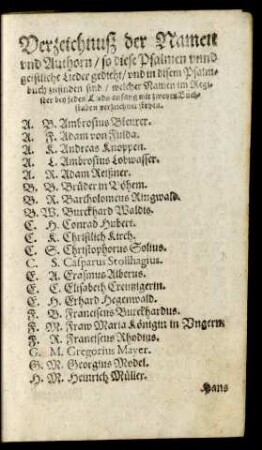 Verzeichnuß der Namen
vnd Authorn / so diese Psalmen vnnd
geistliche Lieder gedicht / vnd in disem Psalm-
buch zufinden sind / welcher Namen im Regi-
ster bey jeden Lieds anfang mit zweyen Buch-
staben verzeichnet stehen.
A. B. Ambrosius Blaurer.
A. F. Adam von Fulda.
A. K. Andreas Knoppen.
A. L. Ambrosius Lobwasser.
A. R. Adam Reißner.
B. B. Brüder in Böhem.
B. R. Bartholomeus Ringwald.
B. W. Burckhard Waldis.
C. H. Conrad Hubert.
C. K. Christlich Kirch.
C. S. Christophorus Solius.
C. S. Casparus Stollhagius.
E. A. Erasmus Alberus.
E. C. Elisabeth Creutzigerin.
E. H. Erhard Hegenwald.
F. B. Franciscus Burckhardus.
F. M. Fraw Maria Königin in Vngern.
F. R. Franciscus Rhodius.
G. M. Gregorius Mayer.
G. M. Georgius Model.
H. M. Heinrich Müller.
Hans